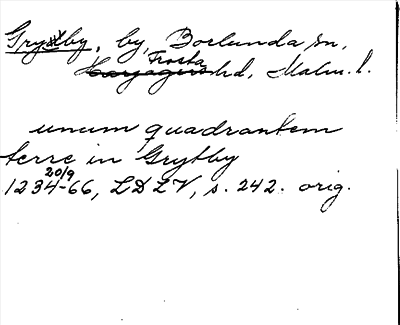 Grytby, by, Borlunda sn,
Frosta hd, Malm. l.
unum quadrantem
terre in Grytby
20/9
1234-66, LDLV, s. 242. orig.